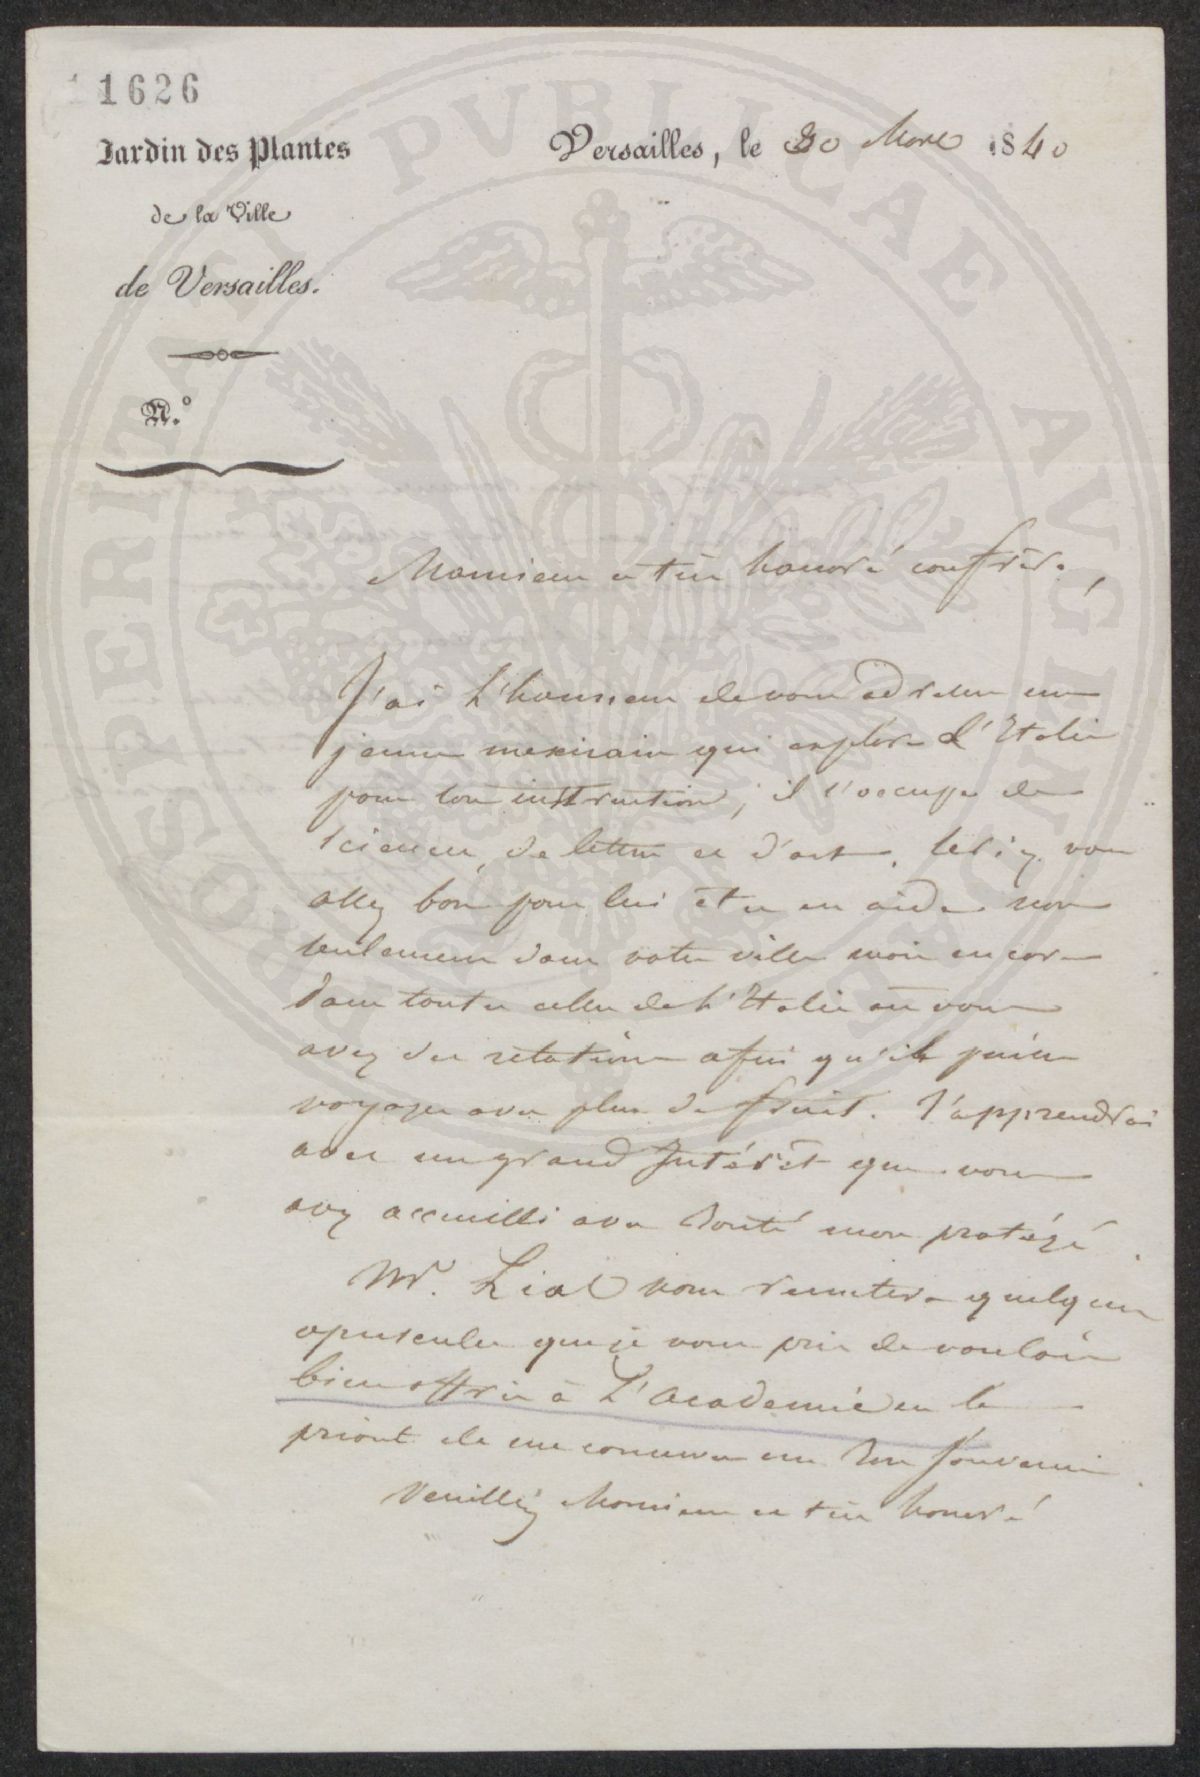 11626
Jardin des Plantes
de la Ville
de Versailles.
N.°
Versailles, le 30 Mars 1840
PROSPERITATI PVBLICAE AVGENDAE
Monsieur et très honoré confrère,
J'ai l'honneur de vous adresser un
jeune mexicain qui explore l'Italie
pour son instruction; il s'occupe de
sciences, de lettres et d'arts. Seriez vous
assez bon pour lui être en aide non
seulement dans votre ville mais encore
dans toutes celles de l'Italie où vous
avez des relations afin qu'il puisse
voyager avec plus de fruit. J'apprendrai
avec un grand intérêt que vous
avez accueilli avec bonté mon protégé.
Mr. vous remettra quelques
opuscules que je vous prie de vouloir
bien offrir à l'académie en la
priant de me conserver un bon souvenir.
Veuillez Monsieur et très honoré